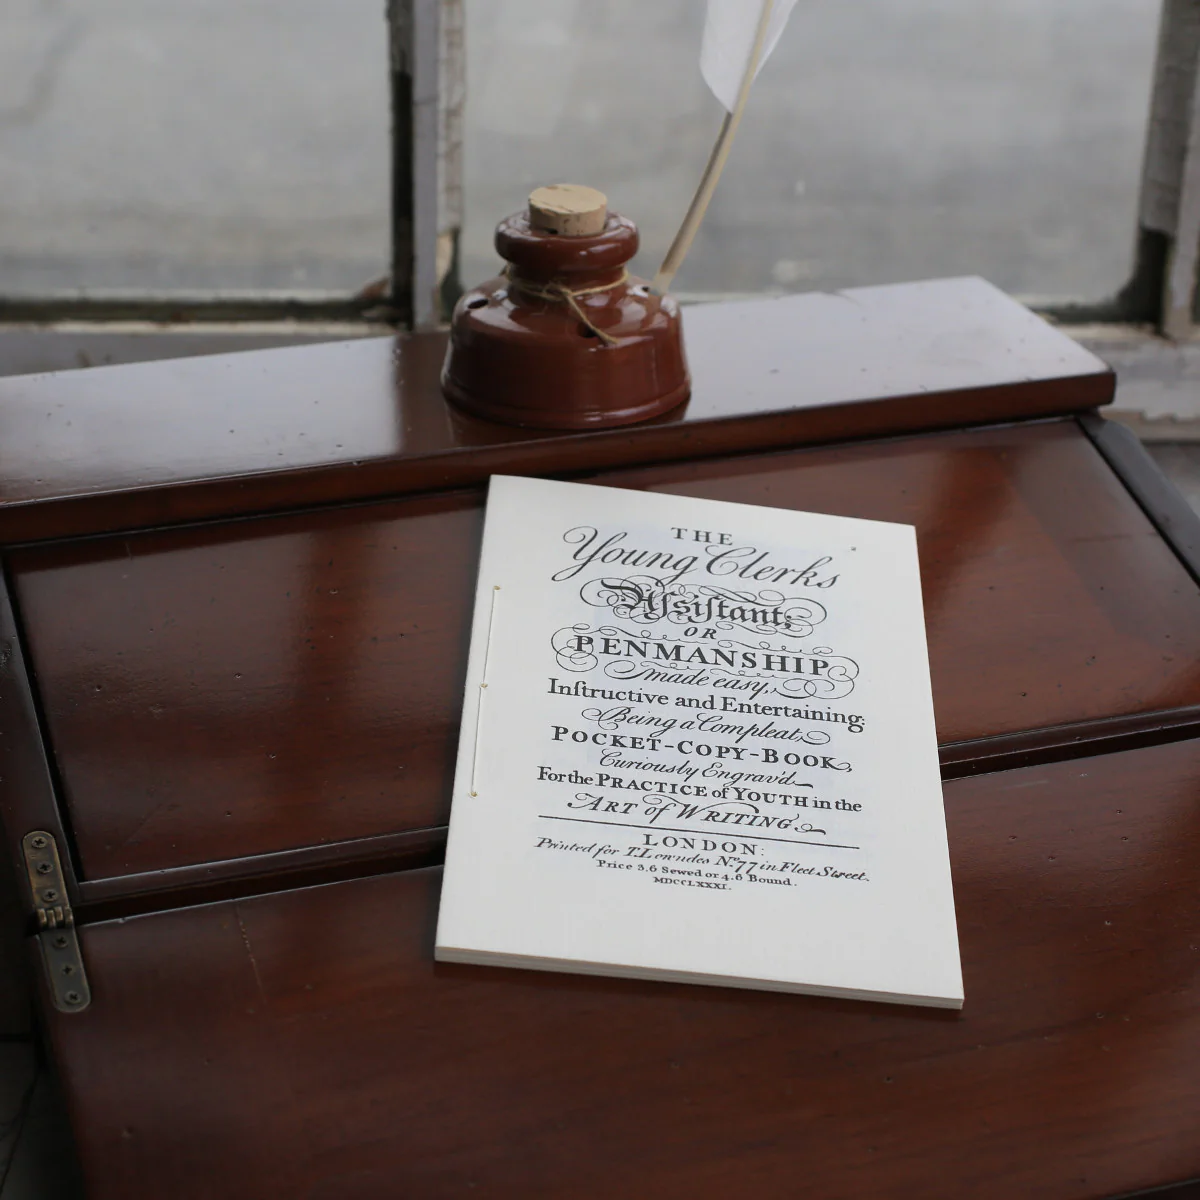 THE
Young Clerks
Aſsiſtant;
OR
PENMANSHIP
made easy,
Inſtructive and Entertaining:
Being a Compleat
POCKET-COPY-BOOK,
Curiously Engrav'd
For the PRACTICE of YOUTH in the
ART of WRITING.
LONDON:
Printed for T. Lowndes No. 77 in Fleet Street.
Price 3.6 Sewed or 4.6 Bound.
MDCCLXXXI.